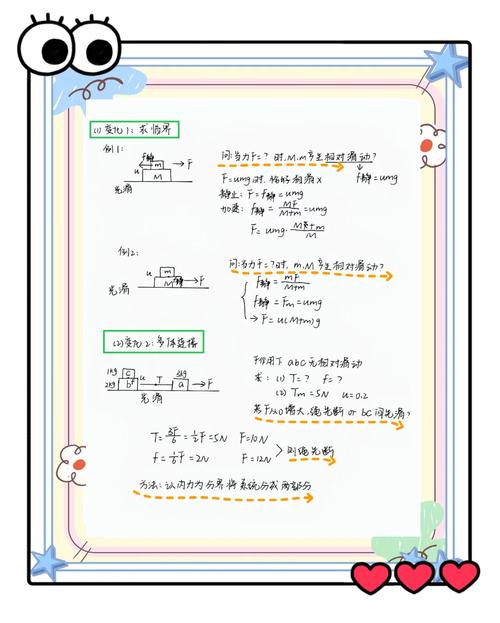 (1) 变化1：求临界
例1：
f静 m → F
M
光滑
问：当力F=？时，M、m产生相对滑动？
F=umg时，恰好相滑 x
f静=umg
静止：F=f静=umg
加速：f静=MF/(M+m)=umg
F=umg·(M+m)/M
例2：
u m
M f静 → F
光滑
问：当力F=？时，m、M产生相对滑动？
f静=mF/(M+m)
f静=Fm=umg
→F=u(M+m)g
(2) 变化2：多体连接
1kg c
2kg b u T 3kg a → F
光滑
F作用下abc无相对滑动
求：(1) T=？ f=？
(2) Tm=5N u=0.2
若F从0增大，绳先断 or bc间先滑？
T=3F/6=1/2F=5N F=10N
f=1/6F=2N F=12N
则绳先断
方法：以内力为分界将系统分成两部分